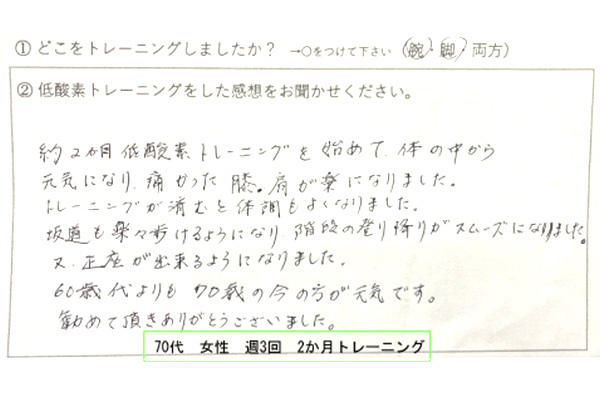 ① どこをトレーニングしましたか？ →○をつけて下さい （腕・脚・両方）
② 低酸素トレーニングをした感想をお聞かせください。
約2か月低酸素トレーニングを始めて、体の中から
元気になり、痛かった膝。肩が楽になりました。
トレーニングが済むと体調もよくなりました。
坂道も楽々歩けるようになり、階段の登り降りがスムーズになりました。
又、正座が出来るようになりました。
60歳代よりも70歳の今の方が元気です。
勧めて頂きありがとうございました。
70代 女性 週3回 2か月トレーニング